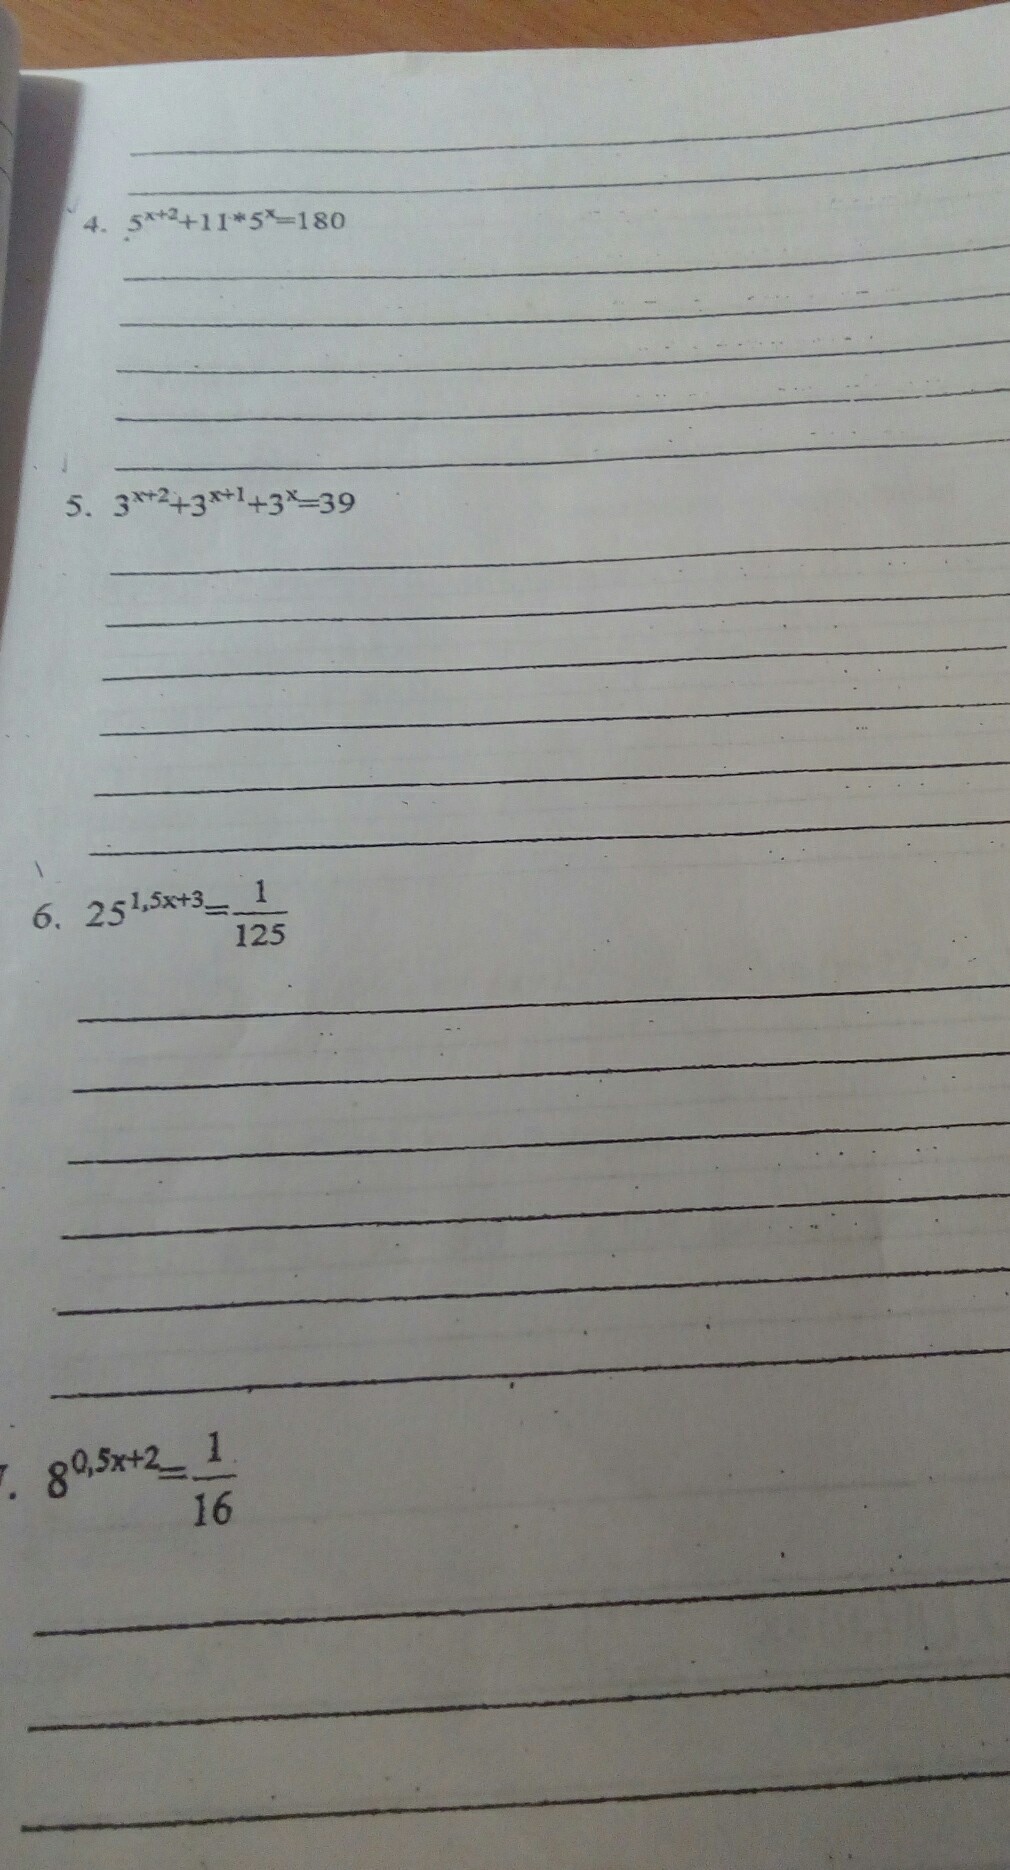 4. 5^{x+2}+11*5^{x}=180
5. 3^{x+2}+3^{x+1}+3^{x}=39
6. 25^{1,5x+3}=\frac{1}{125}
7. 8^{0,5x+2}=\frac{1}{16}